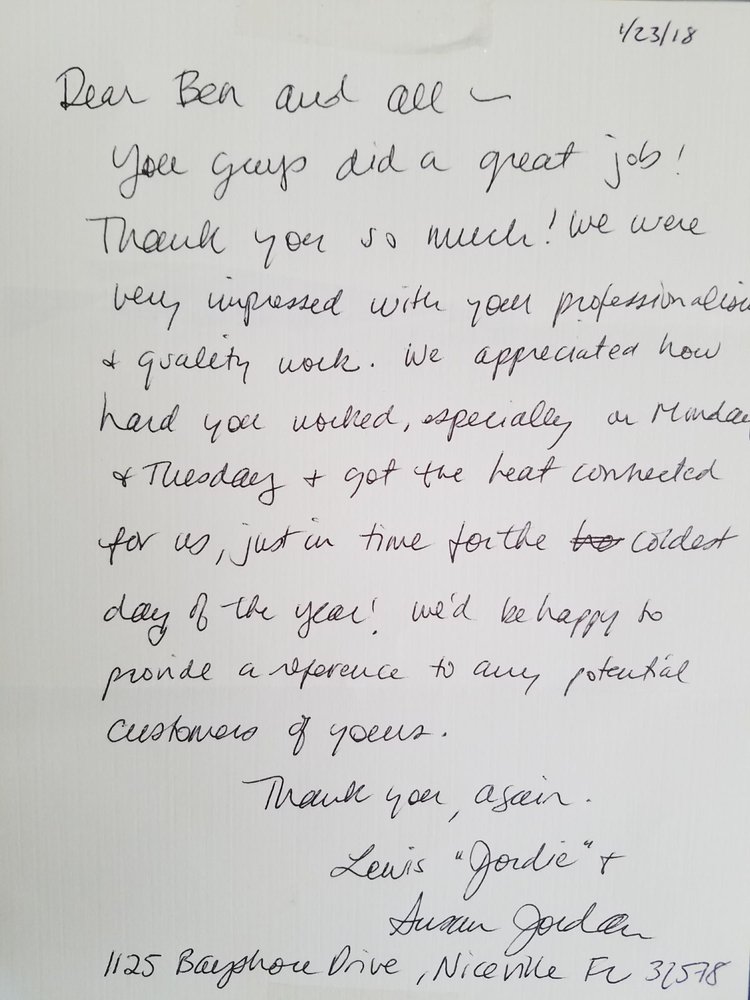 1/23/18
Dear Ben and all ~
You guys did a great job!
Thank you so much! We were
very impressed with your professionalism
& quality work. We appreciated how
hard you worked, especially on Monday
& Tuesday & got the heat connected
for us, just in time for the coldest
day of the year! We'd be happy to
provide a reference to any potential
customers of yours.
Thank you, again.
Lewis "Jordie" &
Susan Jordan
1125 Bayshore Drive, Niceville FL 32578